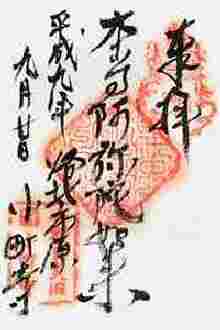 奉拝
本尊阿弥陀如来
平成九年
洛北市原
九月廿日
小町寺